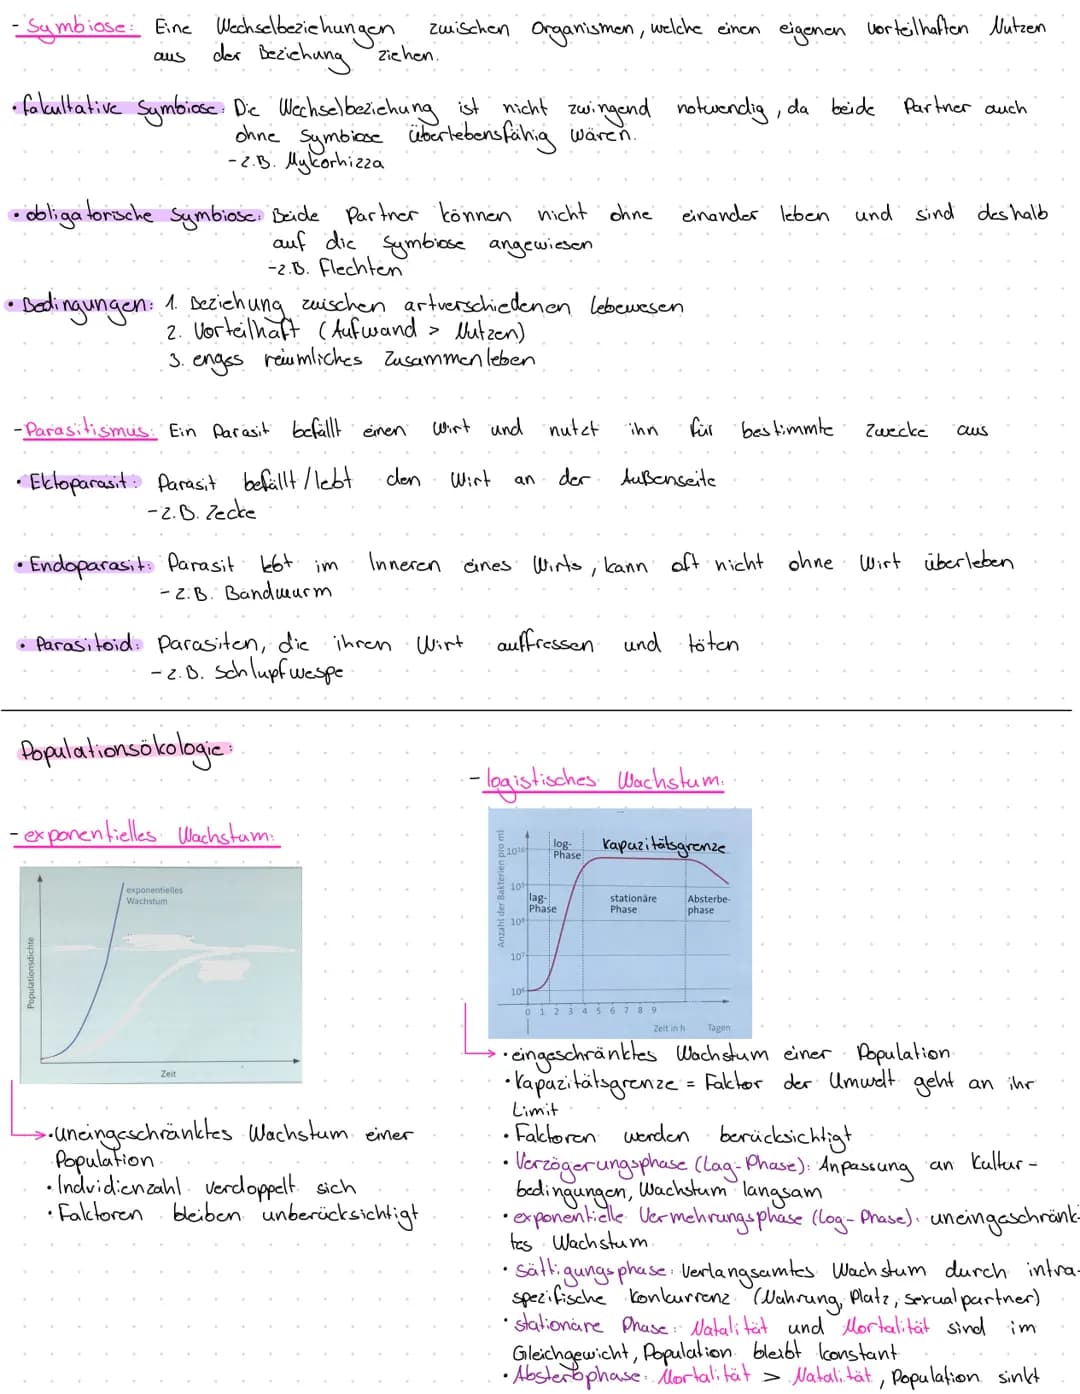 - Symbiose: Eine Wechselbeziehungen zwischen Organismen, welche einen eigenen vorteilhaften Nutzen
aus der Beziehung ziehen.
• fakultative Symbiose: Die Wechselbeziehung ist nicht zwingend notwendig, da beide Partner auch
ohne Symbiose überlebensfähig wären.
- z.B. Mykorhizza
• obligatorische Symbiose: Beide Partner können nicht ohne einander leben und sind deshalb
auf die Symbiose angewiesen
- z.B. Flechten
• Bedingungen: 1. Beziehung zwischen artverschiedenen Lebewesen
2. Vorteilhaft (Aufwand > Nutzen)
3. enges räumliches Zusammenleben
- Parasitismus: Ein Parasit befällt einen Wirt und nutzt ihn für bestimmte Zwecke aus
• Ektoparasit: Parasit befällt/lebt den Wirt an der Außenseite
- z.B. Zecke
• Endoparasit: Parasit lebt im Inneren eines Wirts, kann oft nicht ohne Wirt überleben
- z.B. Bandwurm
• Parasitoid: Parasiten, die ihren Wirt auffressen und töten
- z.B. Schlupfwespe
Populationsökologie:
- exponentielles Wachstum:
exponentielles
Wachstum
Populationsdichte
Zeit
• uneingeschränktes Wachstum einer
Population
• Indvidienzahl verdoppelt sich
• Faktoren bleiben unberücksichtigt
- logistisches Wachstum:
Anzahl der Bakterien pro ml
log-
Phase
Kapazitätsgrenze
lag-
Phase
stationäre
Phase
Absterbe-
phase
10¹⁰
10⁹
10⁸
10⁷
10⁶
0 1 2 3 4 5 6 7 8 9
Zeit in h Tagen
• eingeschränktes Wachstum einer Population
• Kapazitätsgrenze = Faktor der Umwelt geht an ihr
Limit
• Faktoren werden berücksichtigt
• Verzögerungsphase (Lag-Phase): Anpassung an Kultur-
bedingungen, Wachstum langsam
• exponentielle Vermehrungsphase (Log-Phase): uneingeschränk-
tes Wachstum
• Sättigungsphase: Verlangsamtes Wachstum durch intra-
spezifische Konkurrenz (Nahrung, Platz, Sexualpartner)
• stationäre Phase: Natalität und Mortalität sind im
Gleichgewicht, Population bleibt konstant
• Absterbphase: Mortalität > Natalität, Population sinkt